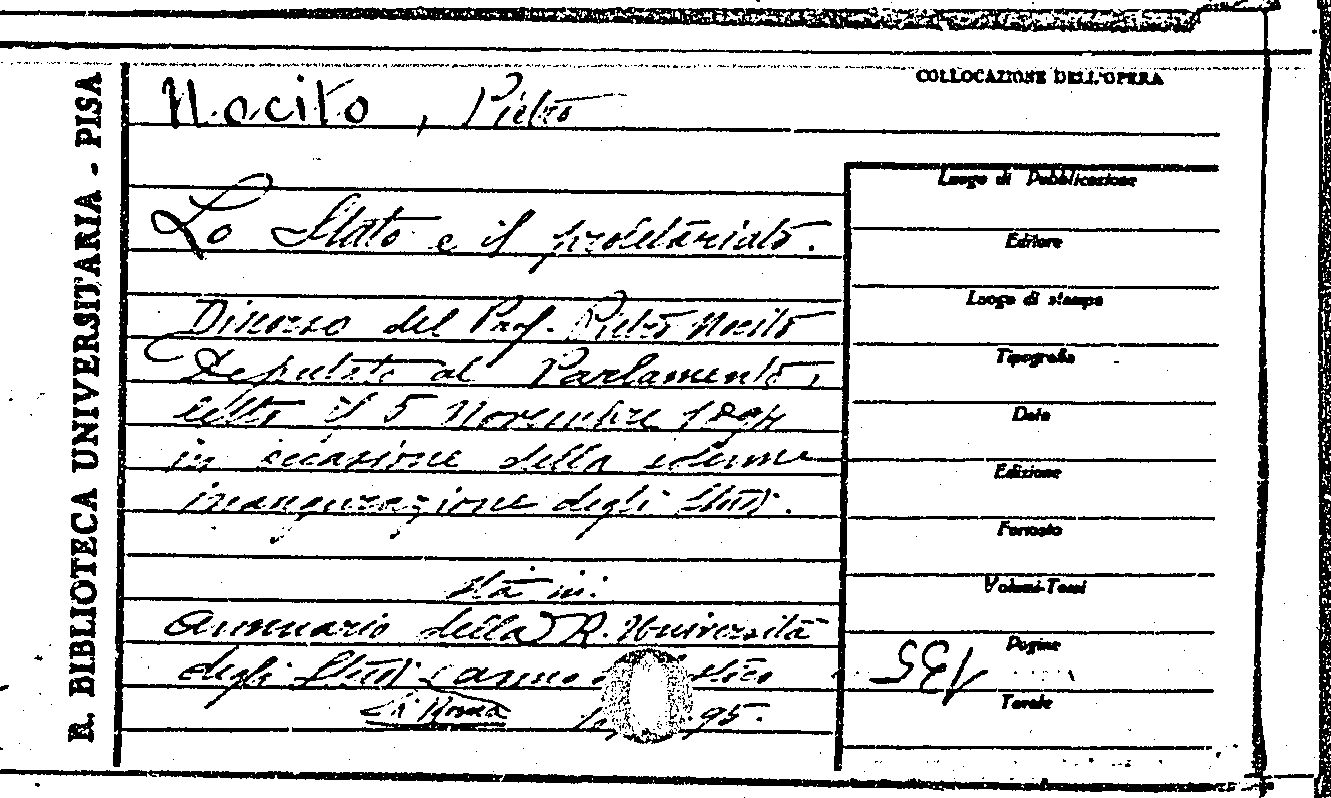 R. BIBLIOTECA UNIVERSITARIA - PISA
COLLOCAZIONE DELL'OPERA
Nocito, Pietro
Lo Stato e il proletariato.
Discorso del Prof. Pietro Nocito
Deputato al Parlamento,
letto il 5 Novembre 1894
in occasione della solenne
inaugurazione degli Studi.
Sta in:
Annuario della R. Università
degli Studi anno
di Roma 95.
Luogo di Pubblicazione
Editore
Luogo di stampa
Tipografia
Data
Edizione
Formato
Volumi-Tomi
Pagine
135
Tavole